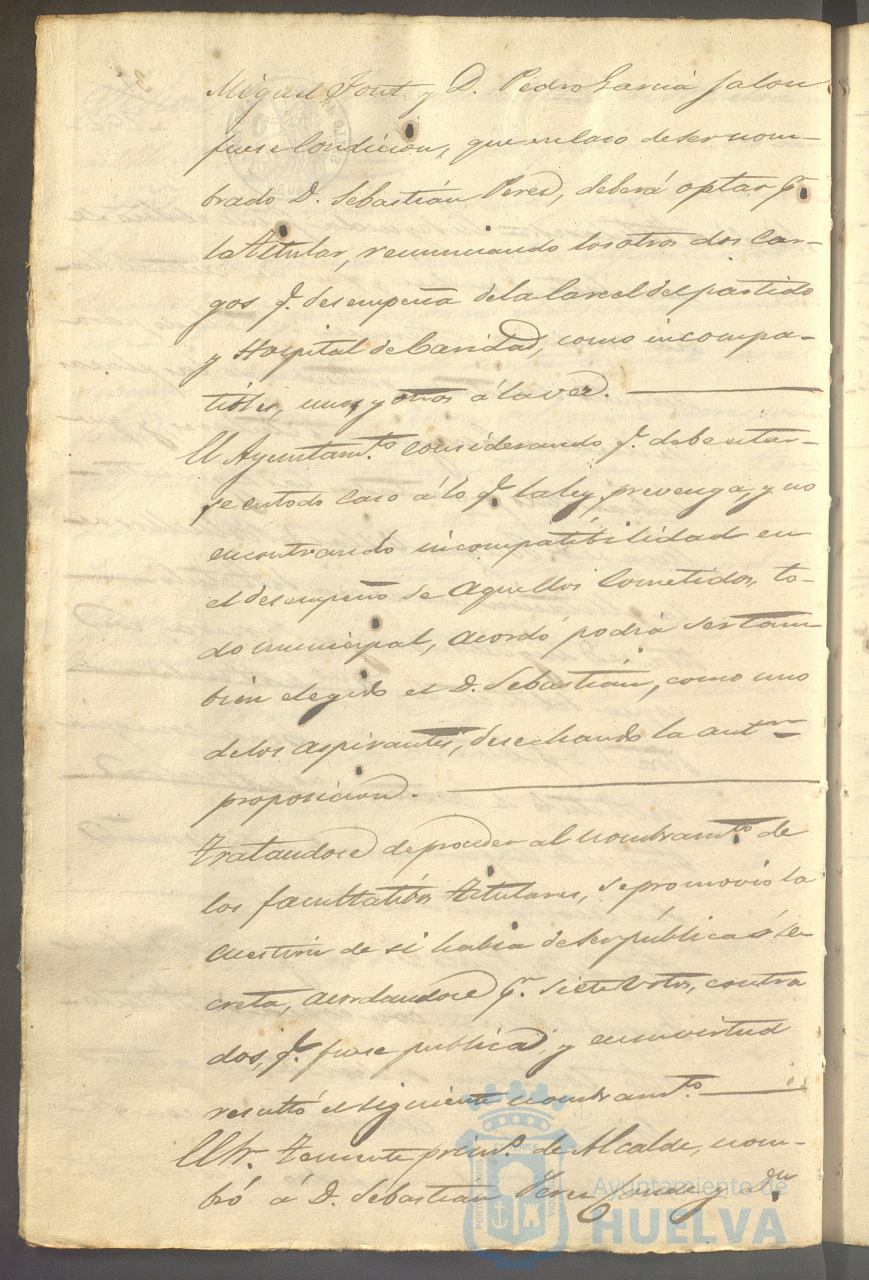 Miguel Font y D. Pedro Garcia Jalon
fuese Condicion, que en caso de ser nom-
brado D. Sebastián Perez, deberá optar p.r
la titular, renunciando los otros dos car-
gos q.e desempeña de la Carcel del partido
y Hospital de Caridad, como incompa-
tibles, unos y otros á la vez.
El Ayuntam.to considerando q.e debe estar-
se en todo caso á lo q.e la ley prevenga, y no
encontrando incompatibilidad en
el desempeño de aquellos Cometidos, to-
do municipal, acordó podrá ser tam
bien elegido el D. Sebastián, como uno
de los aspirantes, desechando la ant.or
proposicion.
Tratandose de proceder al nombram.to de
los facultativos titulares, se promovió la
cuestion de si habia de ser pública ó se-
creta, acordandose p.r siete votos, contra
dos, q.e fuese publica, y en su virtud
resultó el siguiente nombram.to
El Sr. Teniente prim.o de Alcalde, nom-
bró á D. Sebastian Perez y D.n
Ayuntamiento de
HUELVA